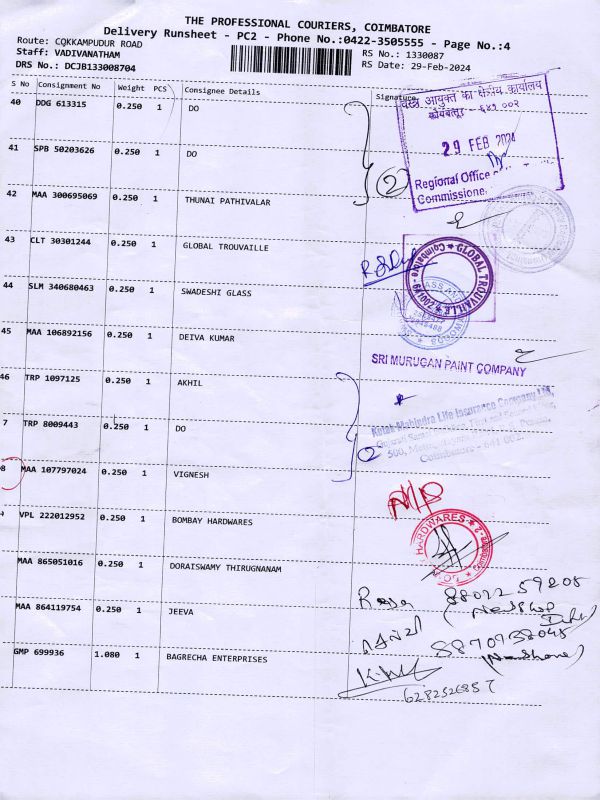 THE PROFESSIONAL COURIERS, COIMBATORE
Delivery Runsheet - PC2 - Phone No.:0422-3505555 - Page No.:4
Route: CQKKAMPUDUR ROAD
RS No.: 1330087
Staff: VADIVANATHAM
RS Date: 29-Feb-2024
DRS No.: DCJB133008704
S No Consignment No Weight PCS Consignee Details Signature
40 DDG 613315 0.250 1 DO
वस्त्र आयुक्त का क्षेत्रीय कार्यालय
कोयंबत्तूर - ६४१ ००२
29 FEB 2024
Regional Office
Commissione
41 SPB 50203626 0.250 1 DO
2
42 MAA 300695069 0.250 1 THUNAI PATHIVALAR
43 CLT 30301244 0.250 1 GLOBAL TROUVAILLE
GLOBAL TROUVAILLE
Coimbatore - 641002
44 SLM 340680463 0.250 1 SWADESHI GLASS
45 MAA 106892156 0.250 1 DEIVA KUMAR
SRI MURUGAN PAINT COMPANY
46 TRP 1097125 0.250 1 AKHIL
Kotak Mahindra Life Insurance Company Ltd,
7 TRP 8009443 0.250 1 DO
2
500,
Coimbatore - 641 002.
8 MAA 107797024 0.250 1 VIGNESH
VPL 222012952 0.250 1 BOMBAY HARDWARES
HARDWARES
MAA 865051016 0.250 1 DORAISWAMY THIRUGNANAM
8802259208
MAA 864119754 0.250 1 JEEVA
GMP 699936 1.080 1 BAGRECHA ENTERPRISES
6282526857